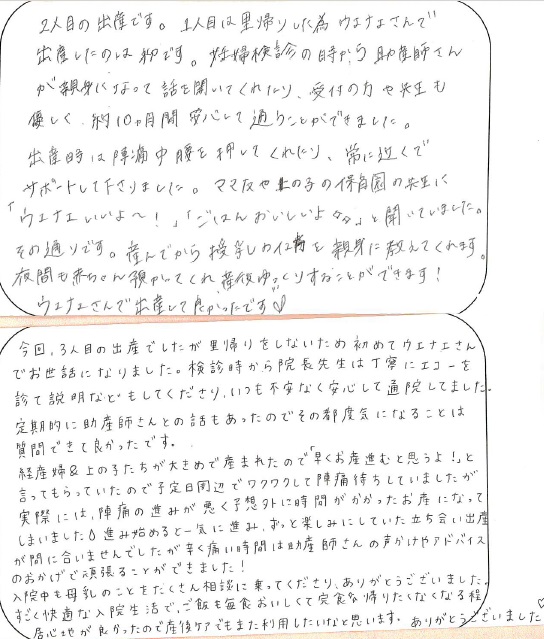 2人目の出産です。1人目は里帰りした為ウエナエさんで
出産したのは初です。妊婦検診の時から助産師さん
が親身になって話を聞いてくれたり、受付の方や先生も
優しく、約10ヶ月間安心して通うことができました。
出産時は陣痛中腰を押してくれたり、常に近くで
サポートして下さりました。ママ友や上の子の保育園の先生に
「ウエナエいいよ〜!」「ごはんおいしいよ〜」と聞いていました。
その通りです。産んでから授乳の仕方を親身に教えてくれます。
夜間も赤ちゃん預かってくれ産後ゆっくりすることができます!
ウエナエさんで出産して良かったです♡
今回、3人目の出産でしたが里帰りをしないため初めてウエナエさん
でお世話になりました。検診時から院長先生は丁寧にエコーを
診て説明などもしてくださり、いつも不安なく安心して通院してました。
定期的に助産師さんとの話もあったのでその都度気になることは
質問できて良かったです。
経産婦&上の子たちが大きめで産まれたので「早くお産進むと思うよ!」と
言ってもらっていたので予定日周辺でワクワクして陣痛待ちしていましたが
実際には、陣痛の進みが悪く予想外に時間がかかったお産になって
しまいました。進み始めると一気に進み、ずっと楽しみにしていた立ち会い出産
が間に合いませんでしたが辛く痛い時間は助産師さんの声かけやアドバイス
のおかげで頑張ることができました!
入院中も母乳のことをたくさん相談に乗ってくださり、ありがとうございました。
すごく快適な入院生活で、ご飯も毎食おいしくて完食&帰りたくなくなる程
居心地が良かったので産後ケアでもまた利用したいなと思います。ありがとうございました♡